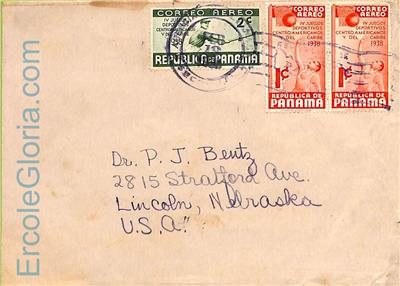 CORREO AEREO
IV JUEGOS
DEPORTIVOS
CENTROAMERICANOS
Y DEL
2c
REPUBLICA DE PANAMA
CORREO
AEREO
IV JUEGOS
DEPORTIVOS
CENTROAMERICANOS
Y DEL CARIBE
1938
1c
REPÚBLICA DE
PANAMA
CORREO
AEREO
IV JUEGOS
DEPORTIVOS
CENTROAMERICANOS
Y DEL CARIBE
1938
1c
REPÚBLICA DE
PANAMA
Dr. P. J. Bentz
2815 Stratford Ave.
Lincoln, Nebraska
U.S.A."
ErcoleGloria.com